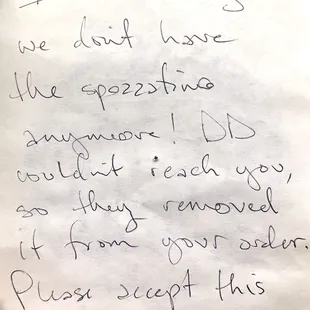 we don't have
the spozzatino
anymore! DD
couldn't reach you,
so they removed
it from your order.
Please accept this